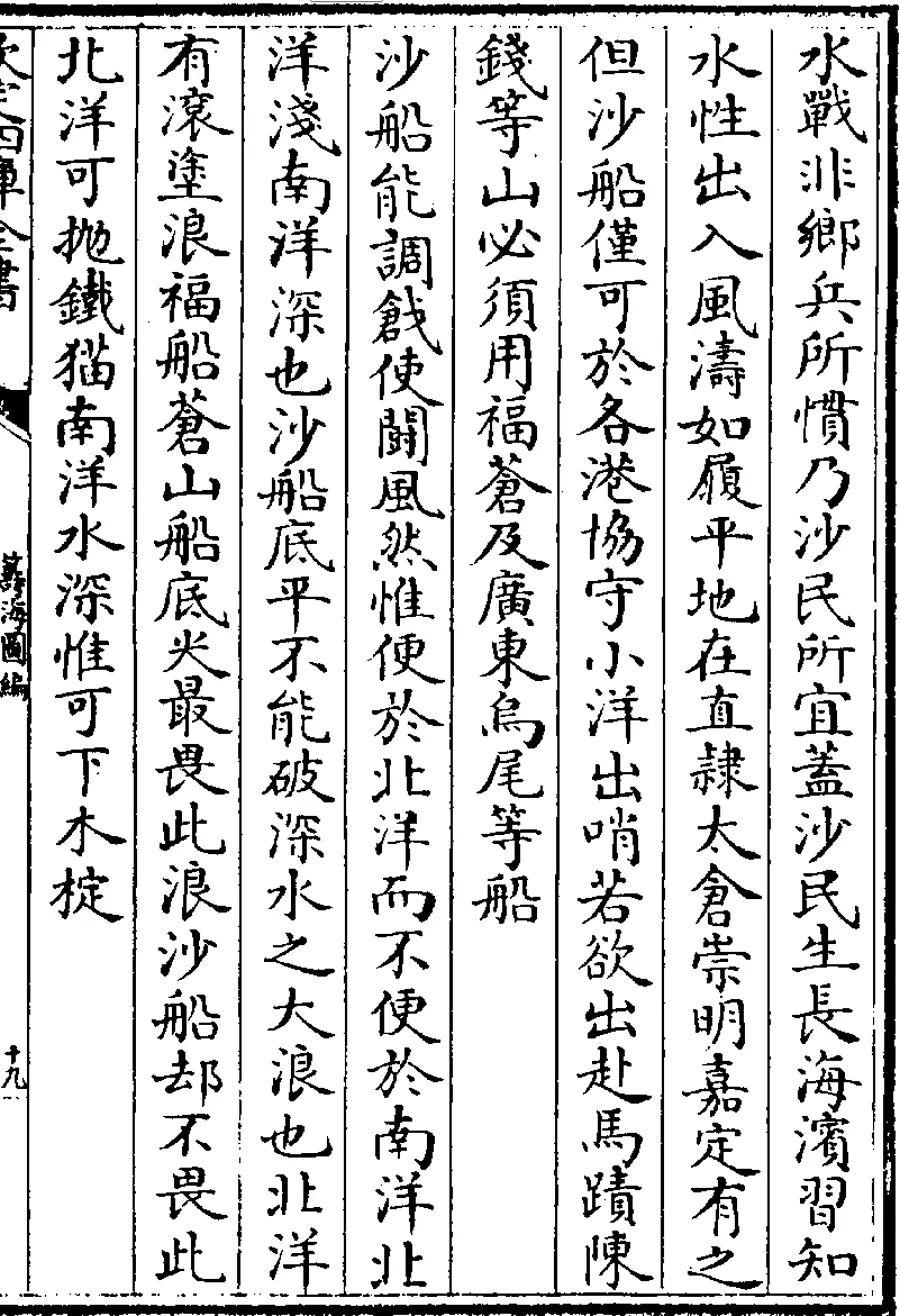 水戰非鄉兵所慣乃沙民所宜蓋沙民生長海濱習知
水性出入風濤如履平地在直隸太倉崇明嘉定有之
但沙船僅可於各港協守小洋出哨若欲出赴馬蹟陳
錢等山必須用福蒼及廣東烏尾等船
沙船能調戧使鬭風然惟便於北洋而不便於南洋北
洋淺南洋深也沙船底平不能破深水之大浪也北洋
有滾塗浪福船蒼山船底尖最畏此浪沙船却不畏此
北洋可抛鐵猫南洋水深惟可下木椗
欽定四庫全書
籌海圖編
十九